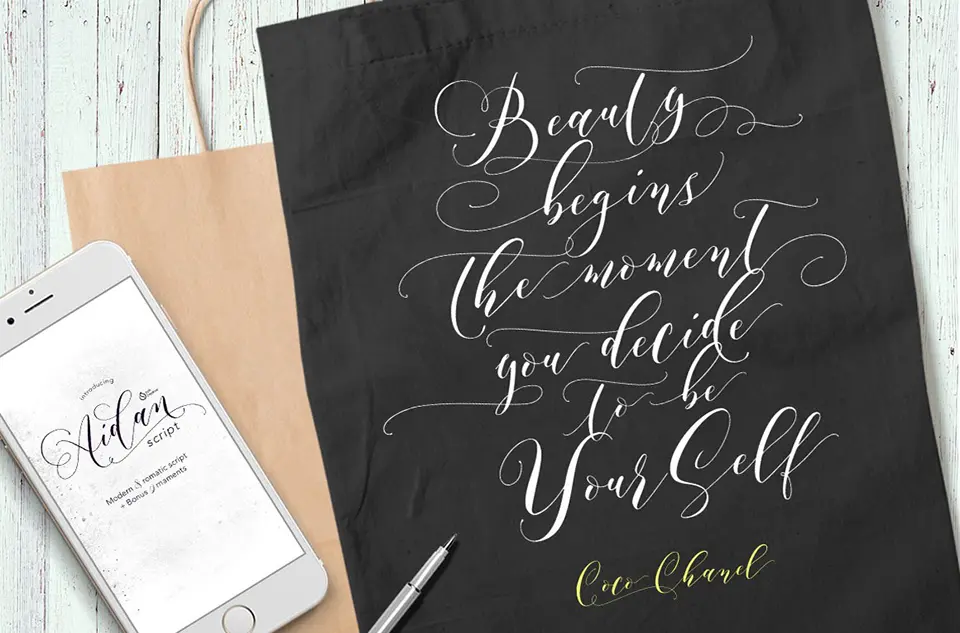 Beauty
begins
the moment
you decide
to be
YourSelf
Coco Chanel
introducing
Aidan
script
Modern & romatic script
+ Bonus Ornaments